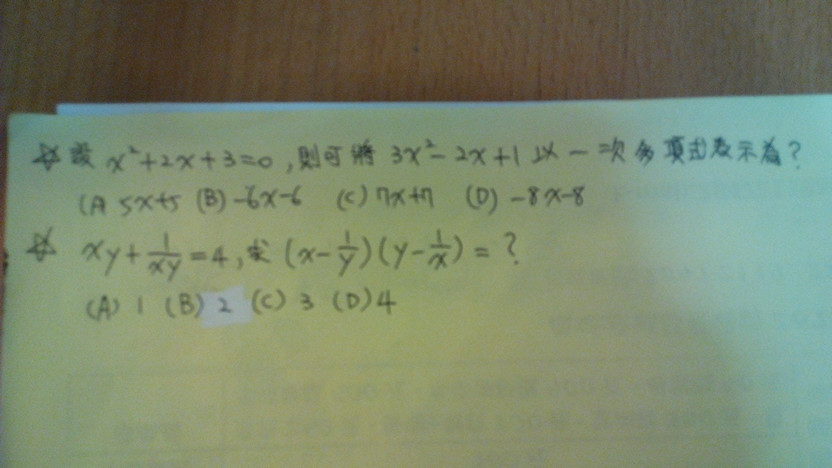 ☆ 設 x²+2x+3=0, 則可將 3x²-2x+1 以一次多項式表示為?
(A) 5x+5 (B) -6x-6 (C) 7x+7 (D) -8x-8
☆ xy+1/xy=4, 求 (x-1/y)(y-1/x)=?
(A) 1 (B) 2 (C) 3 (D) 4